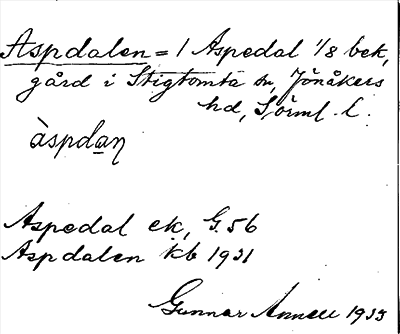 Aspdalen = 1 Aspedal 1/8 bek,
gård i Stigtomta sn, Jönåkers
hd, Sörml. l.
àspdan̥
Aspedal ek, G. 56
Aspdalen kb 1931
Gunnar Annell 1935